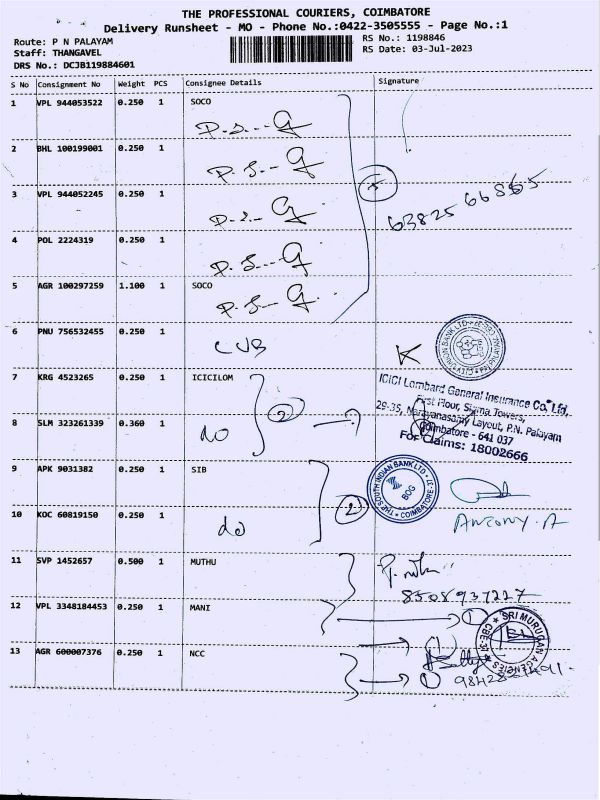 THE PROFESSIONAL COURIERS, COIMBATORE
Delivery Runsheet - MO - Phone No.:0422-3505555 - Page No.:1
Route: P N PALAYAM
RS No.: 1198846
Staff: THANGAVEL
RS Date: 03-Jul-2023
DRS No.: DCJB119884601
S No Consignment No Weight PCS Consignee Details Signature
1 VPL 944053522 0.250 1 SOCO
P.S---G
2 BHL 100199001 0.250 1
P.S--G
3 VPL 944052245 0.250 1
P.S--G
63825 66865
4 POL 2224319 0.250 1
P.S---G
5 AGR 100297259 1.100 1 SOCO
P.S--G
6 PNU 756532455 0.250 1
CUB
7 KRG 4523265 0.250 1 ICICILOM
2
ICICI Lombard General Insurance Co. Ltd.,
First Floor, Sigma Towers,
29-35, Narayanasamy Layout, P.N. Palayam
Coimbatore - 641 037
For Claims: 18002666
8 SLM 323261339 0.360 1
do
9 APK 9031382 0.250 1 SIB
THE SOUTH INDIAN BANK LTD
BOG
COIMBATORE-37
2
10 KOC 60819150 0.250 1
do
ANTONY.A
11 SVP 1452657 0.500 1 MUTHU
8508937227
12 VPL 3348184453 0.250 1 MANI
1
SRI MURUGAN AGENCIES
CBE-37
13 AGR 600007376 0.250 1 NCC
1